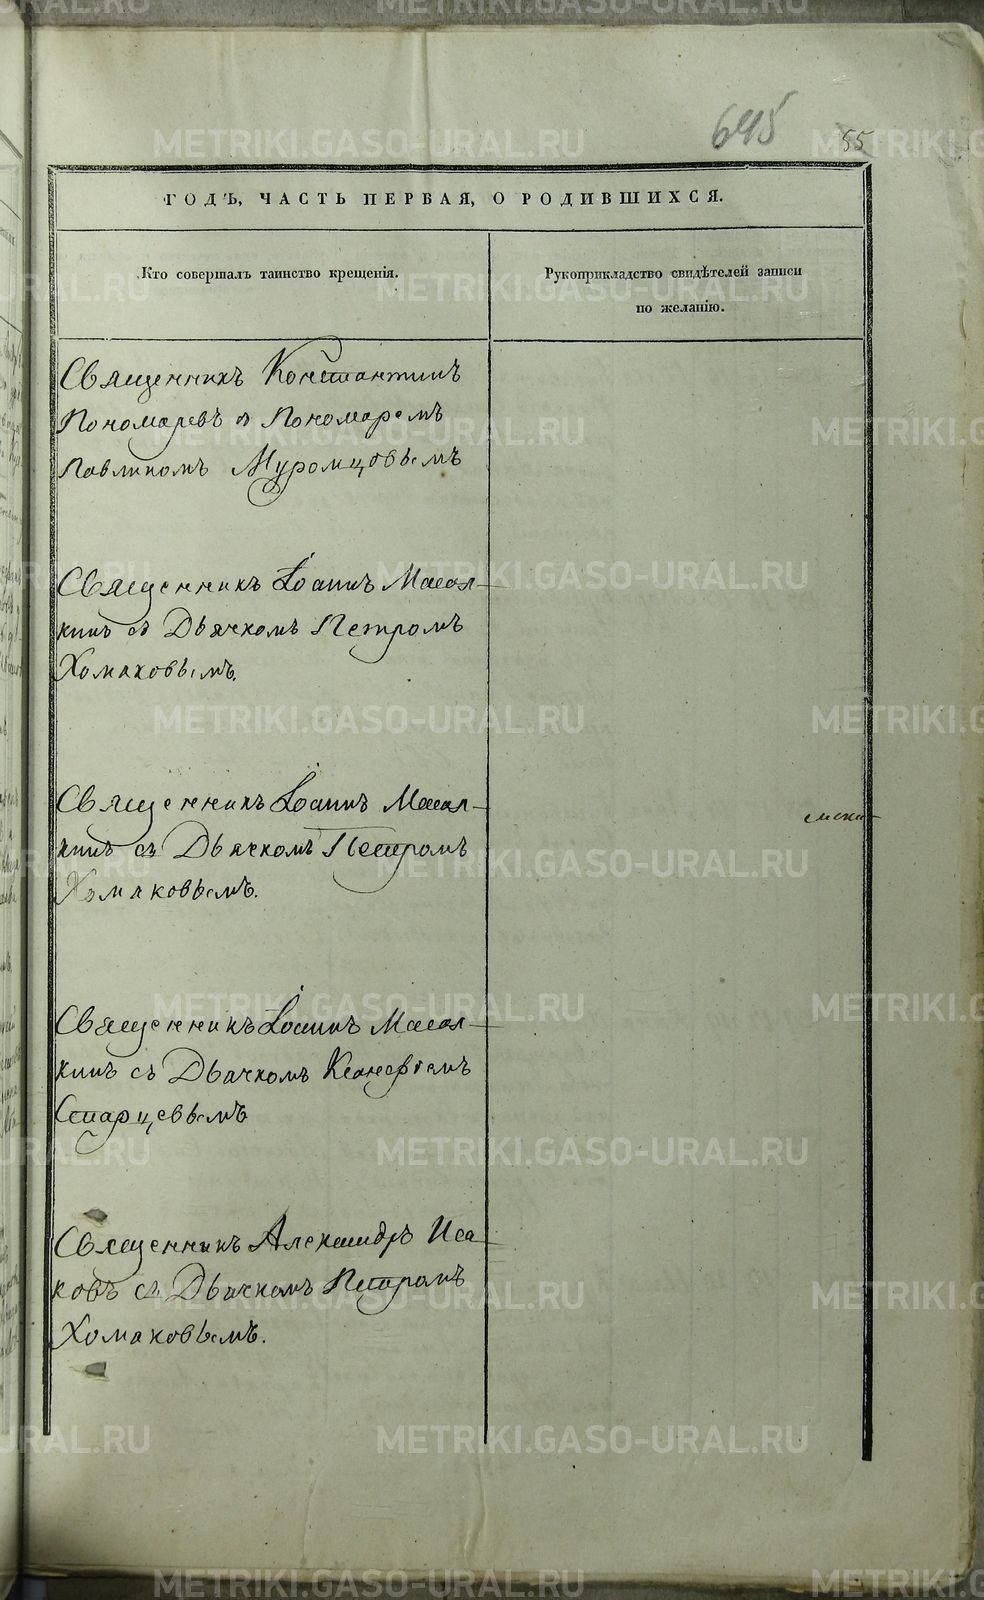 645
85
ГОДЪ, ЧАСТЬ ПЕРВАЯ, О РОДИВШИХСЯ.
Кто совершалъ таинство крещенія.
Рукоприкладство свидѣтелей записи
по желанію.
Священникъ Константинъ
Пономаревъ съ Пономаремъ
Павлиномъ Муромцовымъ
Священникъ Іоаннъ Масал-
кинъ съ Дьячкомъ Петромъ
Хомаковымъ.
Священникъ Іоаннъ Масал-
кинъ съ Дьячкомъ Петромъ
Хомаковымъ.
Священникъ Іоаннъ Масал-
кинъ съ Дьячкомъ
Старцевымъ
Священникъ Александръ Иса-
ковъ съ Дьячкомъ Петромъ
Хомаковымъ.
METRIKI.GASO-URAL.RU